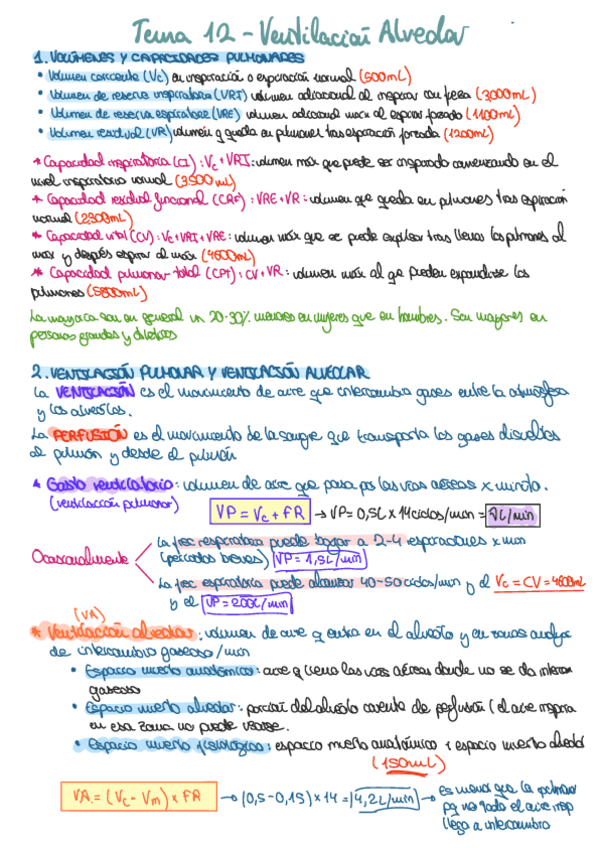 Tema 12 - Ventilación Alveolar
1. VOLÚMENES Y CAPACIDADES PULMONARES
• Volumen corriente (Vc) en inspiración o espiración normal (500mL)
• Volumen de reserva inspiratoria (VRI) volumen adicional al inspirar con fuerza (3000mL)
• Volumen de reserva espiratoria (VRE) volumen adicional max al espirar forzado (1100mL)
• Volumen residual (VR) volumen q queda en pulmones tras espiración forzada (1200mL)
* Capacidad inspiratoria (CI): Vc+VRI: volumen máx que puede ser inspirado comenzando en el
nivel inspiratorio normal (3500 mL)
* Capacidad residual funcional (CRF): VRE+VR: volumen que queda en pulmones tras espiración
normal (2300mL)
* Capacidad vital (CV): Vc+VRI+VRE: volumen máx que se puede expulsar tras llenar los pulmones al
max y después espirar al máx (4600mL)
* Capacidad pulmonar total (CPT): CV+VR: volumen máx al que pueden expandirse los
pulmones (5800mL)
La mayoría son en general un 20-30% menores en mujeres que en hombres. Son mayores en
personas grandes y atléticas
2. VENTILACIÓN PULMONAR Y VENTILACIÓN ALVEOLAR
La VENTILACIÓN es el movimiento de aire que intercambia gases entre la atmósfera
y los alveolos.
La PERFUSIÓN es el movimiento de la sangre que transporta los gases disueltos
al pulmón y desde el pulmón
* Gasto ventilatorio: volumen de aire que pasa por las vías aéreas x minuto.
(ventilación pulmonar)
VP = Vc + FR → VP = 0,5L x 14 ciclos/min = 7L/min
Ocasionalmente
La frec respiratoria puede bajar a 2-4 respiraciones x min
(periodos breves) VP = 1,5L/min
La frec respiratoria puede alcanzar 40-50 ciclos/min y el Vc = CV = 4600mL
y el VP = 200L/min
(VA)
* Ventilación alveolar: volumen de aire q entra en el alveolo y en zonas
de intercambio gaseoso/min
• Espacio muerto anatómico: aire q llena las vías aéreas donde no se da
gaseoso
• Espacio muerto alveolar: porción del alveolo carente de perfusión (el aire
en esa zona no puede usarse.
• Espacio muerto fisiológico: espacio muerto anatómico + espacio muerto
(150mL)
VA = (Vc - Vm) x FR → (0,5-0,15) x 14 = 4,2L/min → es menor que la pulmonar
pq no todo el aire insp
llega a intercambio